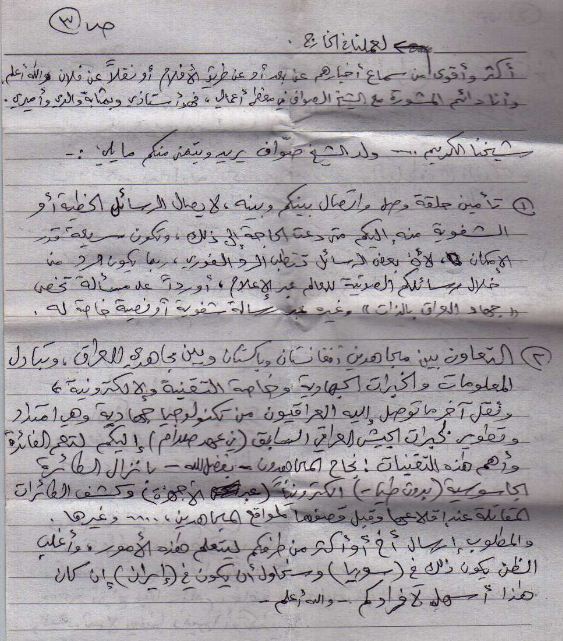 ص ٣
لعملنا في الخارج .
أكثر وأقوى من سماع أخبارهم عن بعد أو عن طريق الأفلام أو نقلاً عن فلان والله أعلم
وأنا دائم المشورة مع الشيخ الصواف في معظم أعمالي ، فهو أستاذي وبمثابة والدي وأميري .
شيخنا الكريم .... ولد الشيخ صوّاف يريد ويتمنى منكم ما يلي :-
① تأمين حلقة وصل واتصال بينكم وبينه ، لايصال الرسائل الخطية أو
الشفوية منه إليكم متى دعت الحاجة إلى ذلك ، وتكون سريعة قدر
الامكان لأن بعض الرسائل تتطلب الرد الفوري ، ربما يكون الرد من
خلال رسائلكم الصوتية للعالم عبر الإعلام ، أو رداً على مسألة تخص
(( جهاد العراق بالذات )) وغيره عبر رسالة شفوية أو نصية خاصة له .
② التعاون بين مجاهدين أفغانستان وباكستان وبين مجاهدي العراق ، وتبادل
المعلومات والخبرات الجهادية وخاصة التقنية والإلكترونية ،
ونقل آخر ما توصل إليه العراقيون من تكنولوجيا جهادية وهي امتداد
وتطوير لخبرات الجيش العراقي السابق (في عهد صدام) إليكم لتعم الفائدة
وأهم هذه التقنيات : نجاح المجاهدون - بفضل الله - بانزال الطائرة
الجاسوسية (بدون طيار) الكترونياً (عبر الأجهزة) وكشف الطائرات
المقاتلة عند اقلاعها وقبل قصفها لمواقع المجاهدين ..... وغيرها .
والمطلوب إرسال أخ أو أكثر من طرفكم ليتعلم هذه الأمور ، وأغلب
الظن يكون ذلك في (سوريا) وسنحاول أن يكون في (إيران) إن كان
هذا أسهل لأفرادكم - والله أعلم -